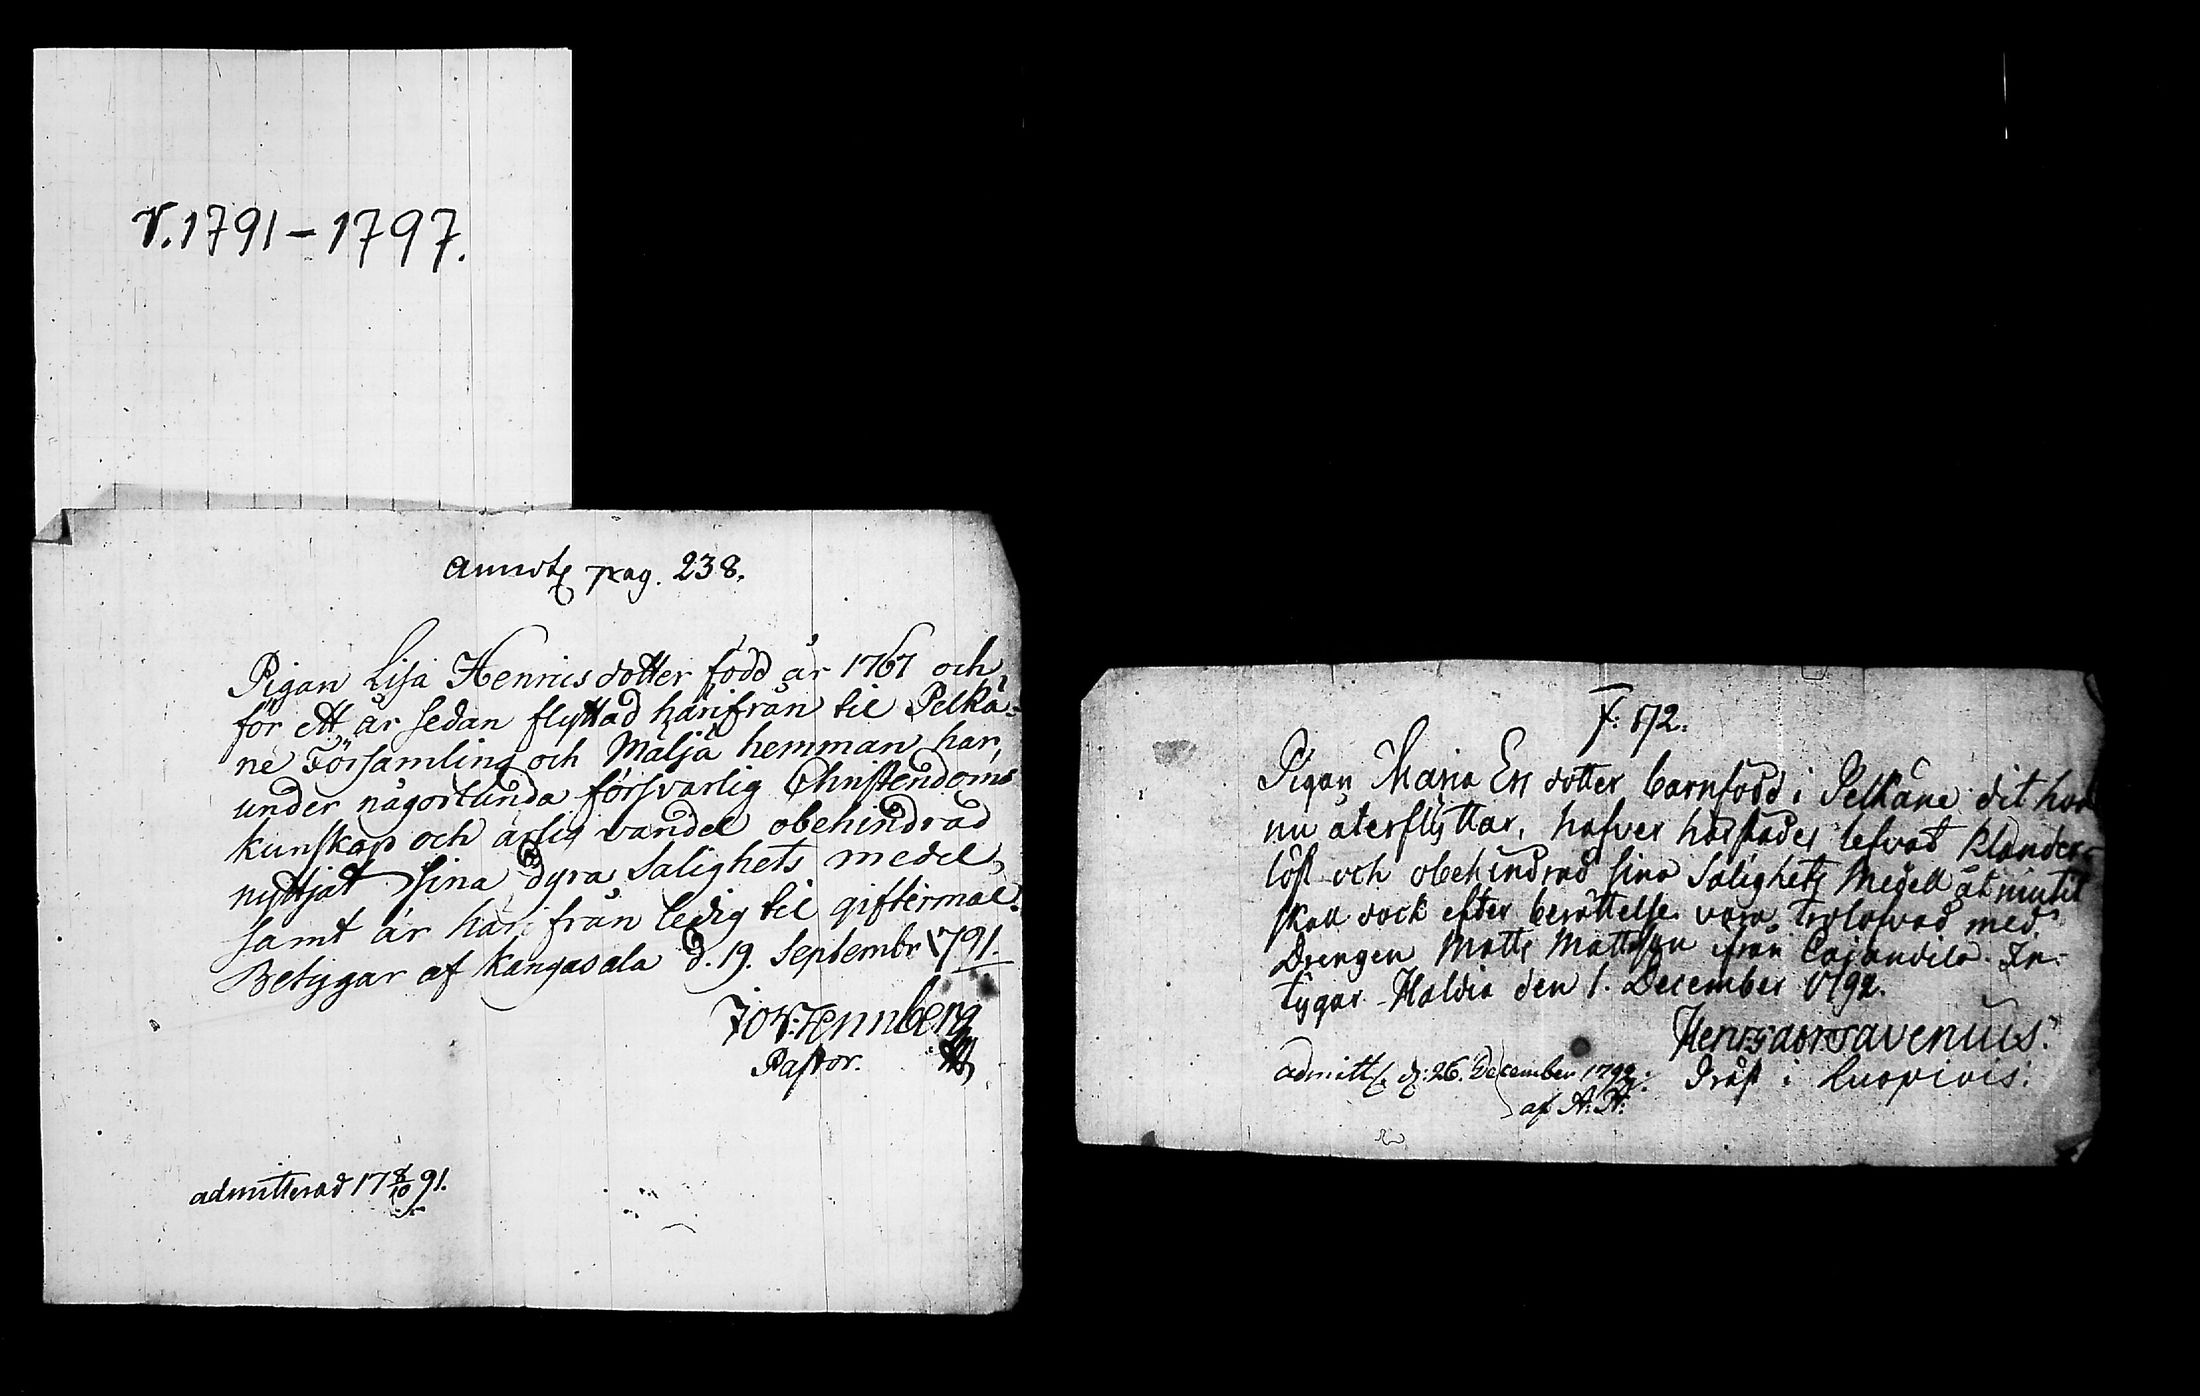 V. 1791-1797.
Annot. pag. 238.
Pigan Lisa Henricsdotter född år 1767 och
för ett år sedan flyttad härifrån til Pelkä-
ne Församling och Mälja hemman, har
under någorlunda försvarlig Christendoms
kunskap och ärlig vandel obehindrad
nyttjat sina dyra Salighets medel,
samt är härifrån ledig til giftermål.
Betygar af Kangasala d. 19. Septembr 1791.
Pastor.
admitterad 17 8/10 91.
F: 172.
Pigan Maria Ers dotter barnfödd i Pelkäne dit hon
nu återflyttar, hafver härstädes lefvat klander-
löst och obehindrad sina Salighets Medell åtniutit
skall dock efter berättelse vara trolofvad med
Drengen Matts Mattsson från Cajandila. In-
tygar Haldia den 1. December 1792.
Avenius.
admitt. d: 26. December 1792. Pråst i Luopiois.
af A. H.